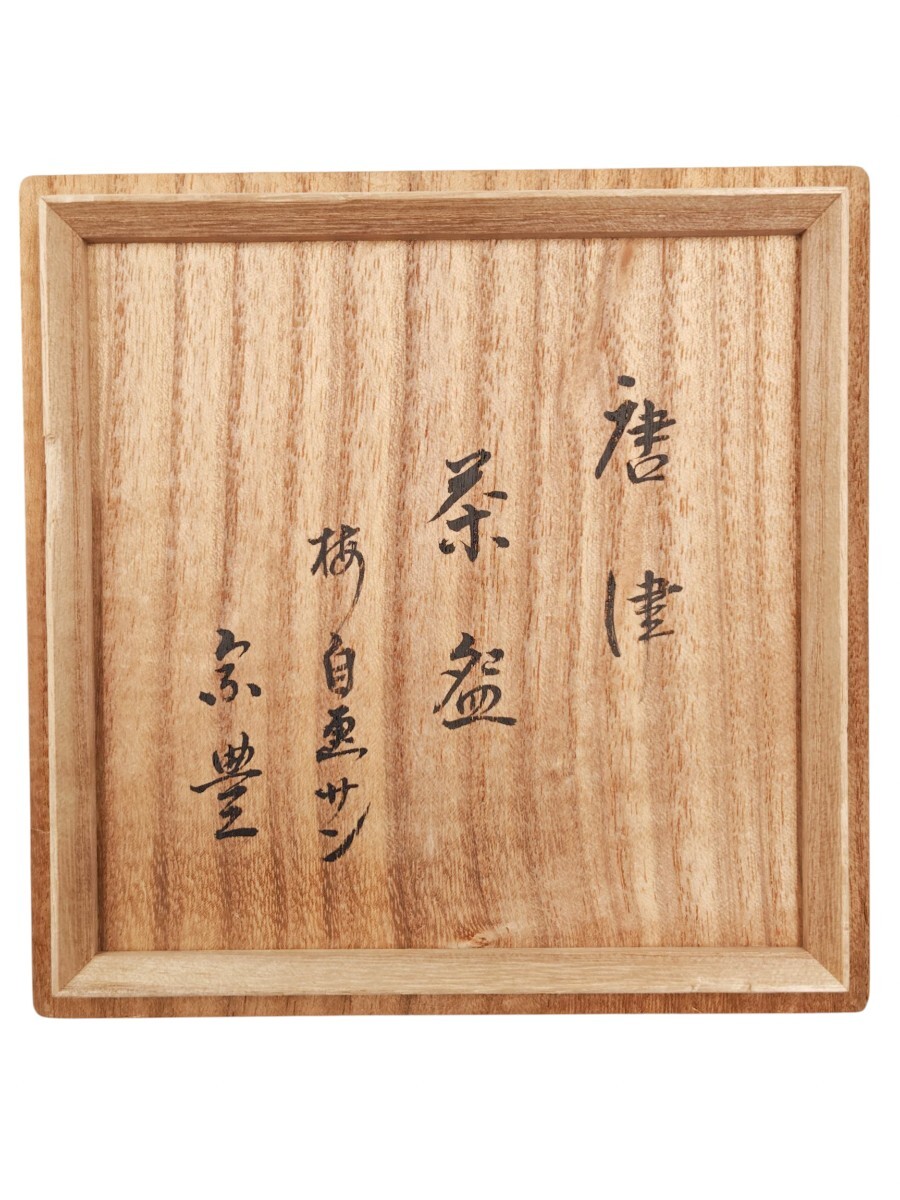 唐津
茶盌
梅 自画サン
宗豊